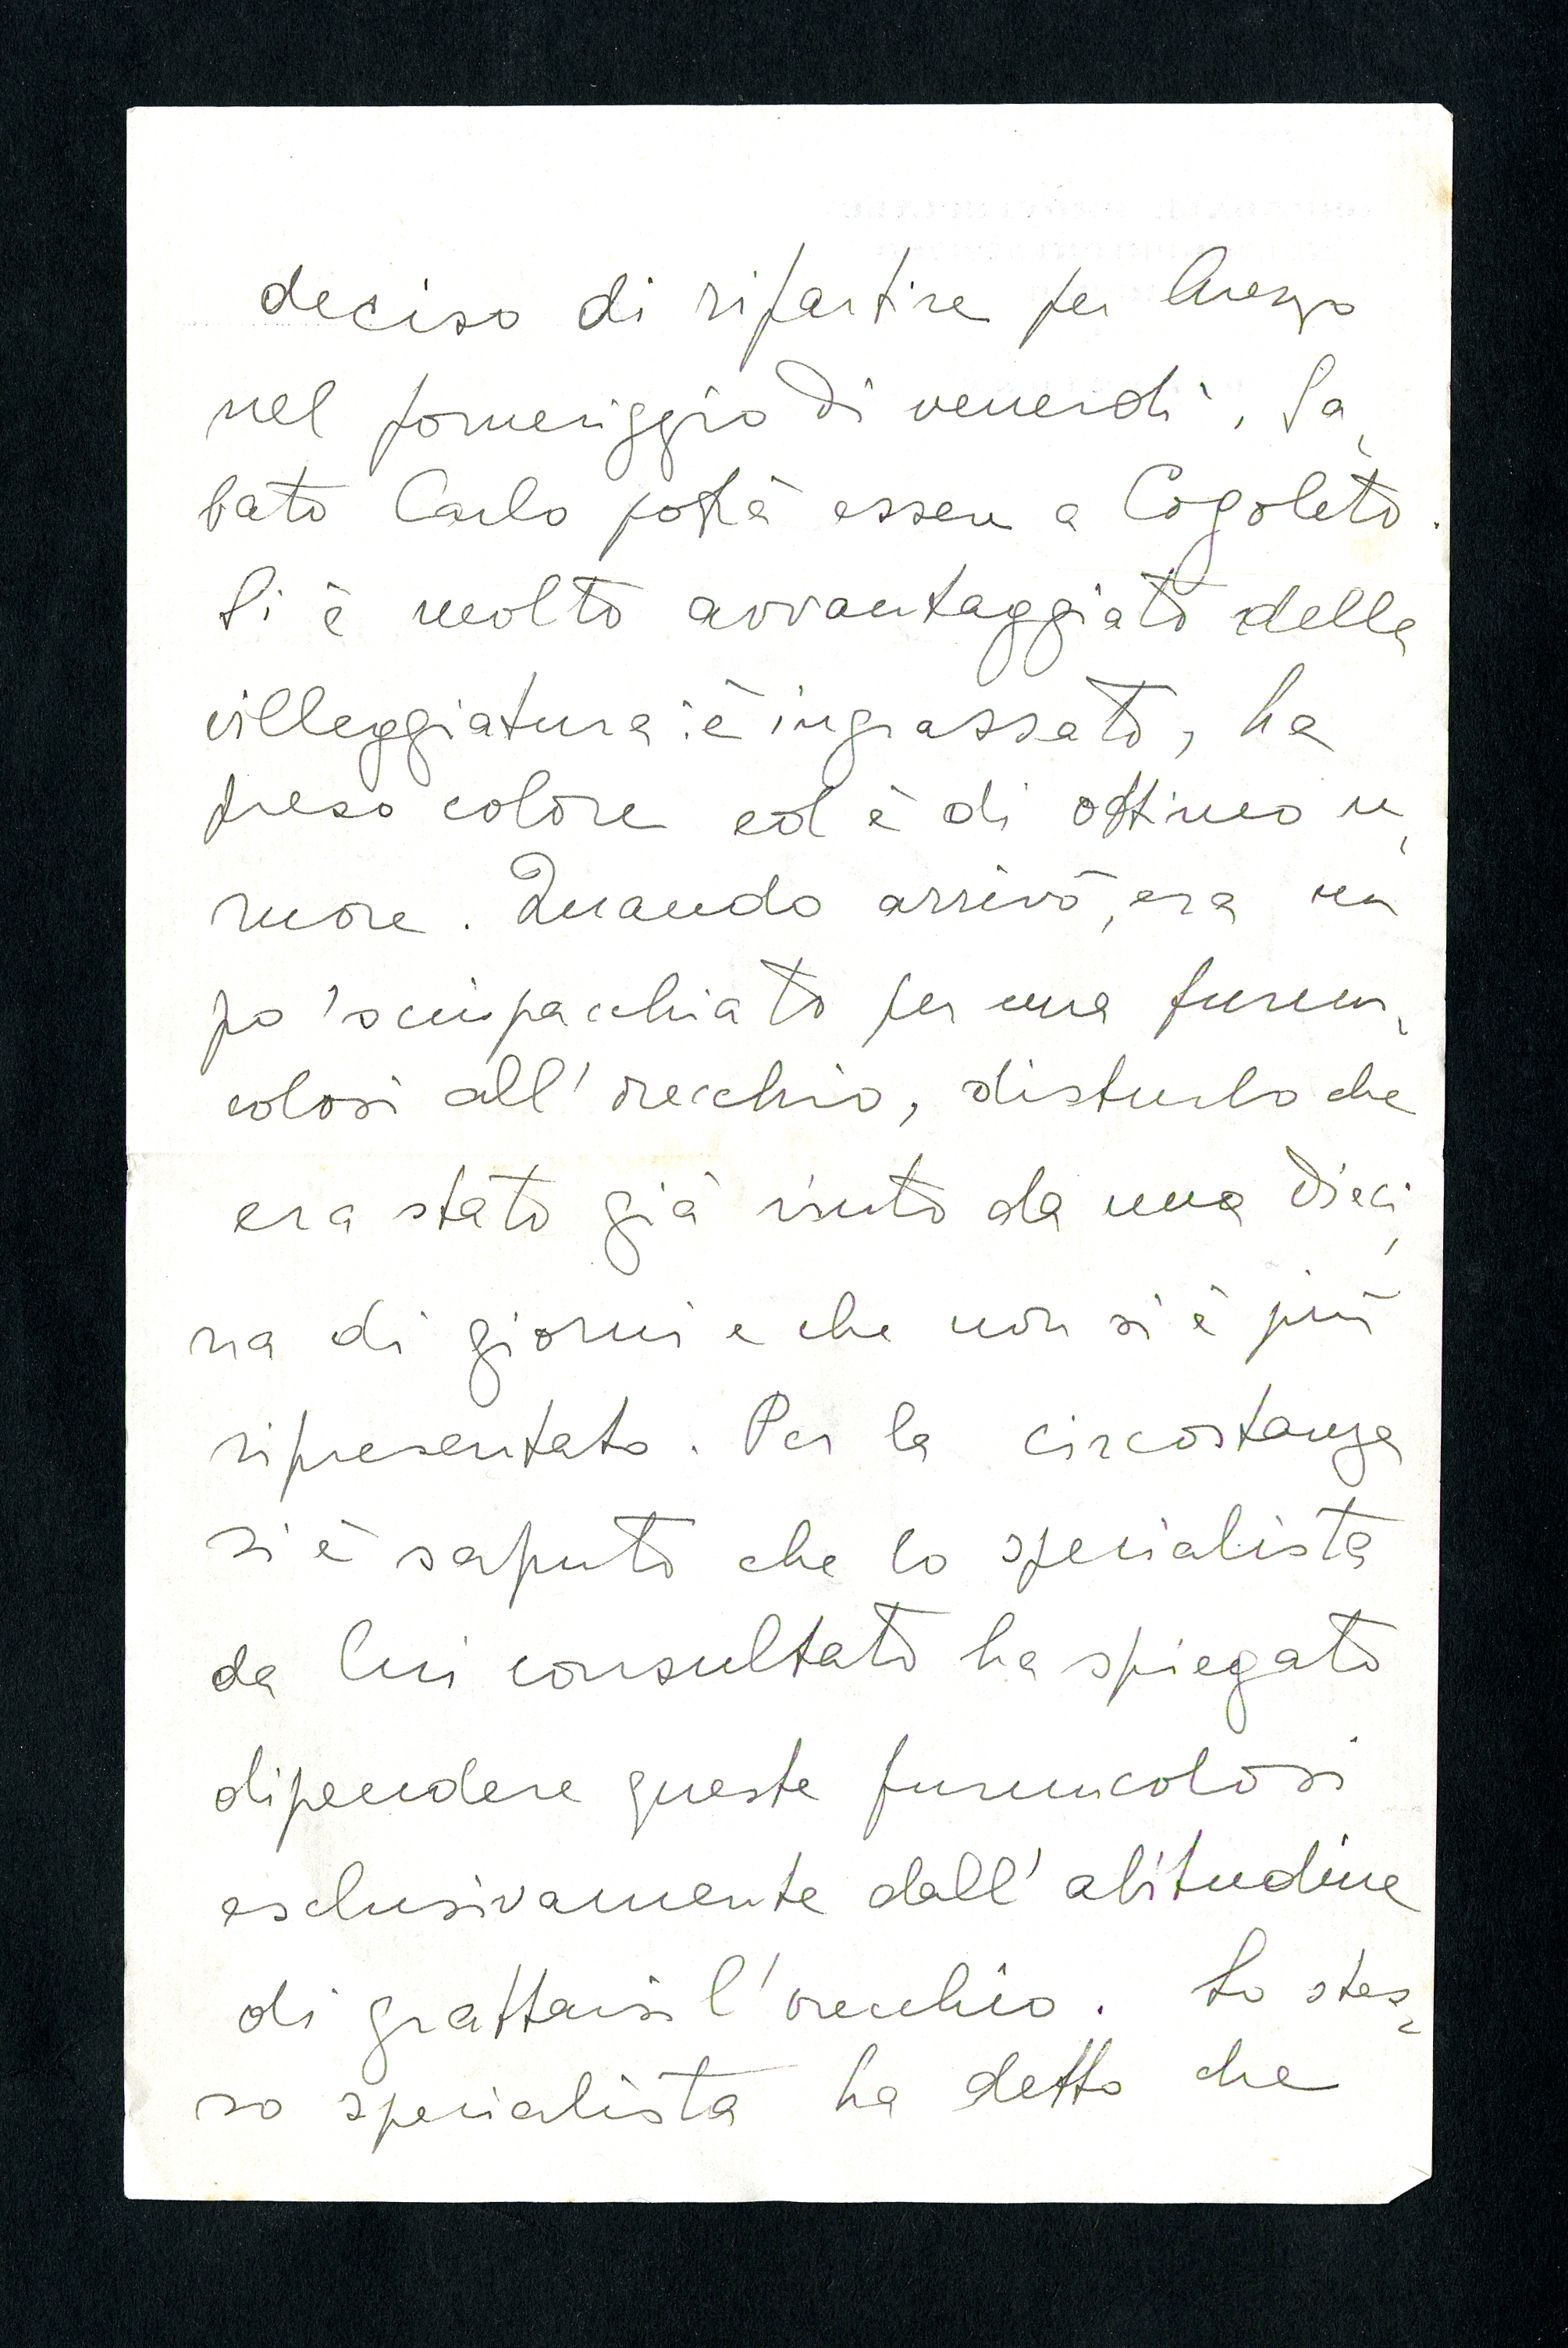 deciso di ripartire per Arezzo
nel pomeriggio di venerdì. Sa-
bato Carlo potrà essere a Cogoleto.
Si è molto avvantaggiato della
villeggiatura: è ingrassato, ha
preso colore ed è di ottimo u-
more. Quando arrivò, era un
po' scuipacchiato per una furun-
colosi all'orecchio, disturbo che
era stato già visuto da una dieci-
na di giorni e che non si è più
ripresentato. Per la circostanza
si è saputo che lo specialista
da lui consultato ha spiegato
dipendere queste furuncolosi
esclusivamente dall'abitudine
di grattarsi l'orecchio. Lo stes-
so specialista ha detto che